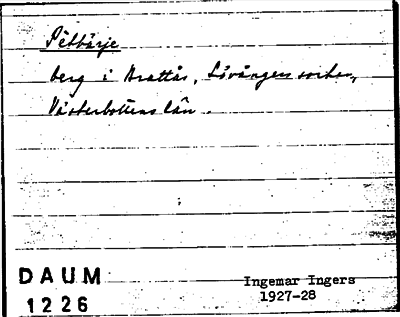 berg i Brattås, Lövångers socken,
Västerbottens län.
DAUM
1226
Ingemar Ingers
1927-28